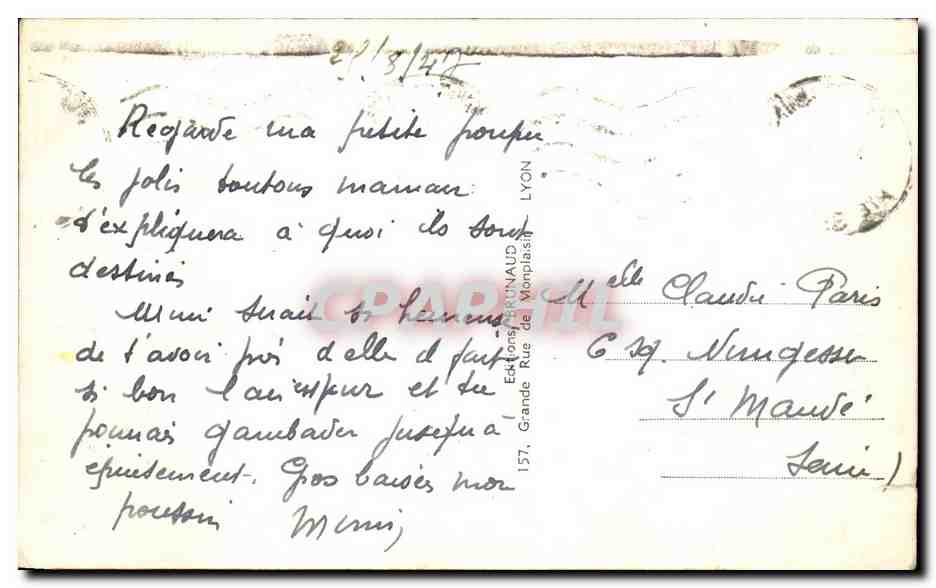 22/3/47
Regarde ma petite poupée
les jolis toutous maman
t'expliquera à quoi ils sont
destinés
Mimi serait si heureuse
de t'avoir près d'elle il fait
si bon l'air pur et tu
pourrais gambader jusqu'à
épuisement. Gros baisers mon
poussin Mimi
Editions BRUNAUD
157, Grande Rue de Monplaisir LYON
Melle Claudie Paris
6 Sq. Nungesser
St Mandé
Seine
CPAPHIL